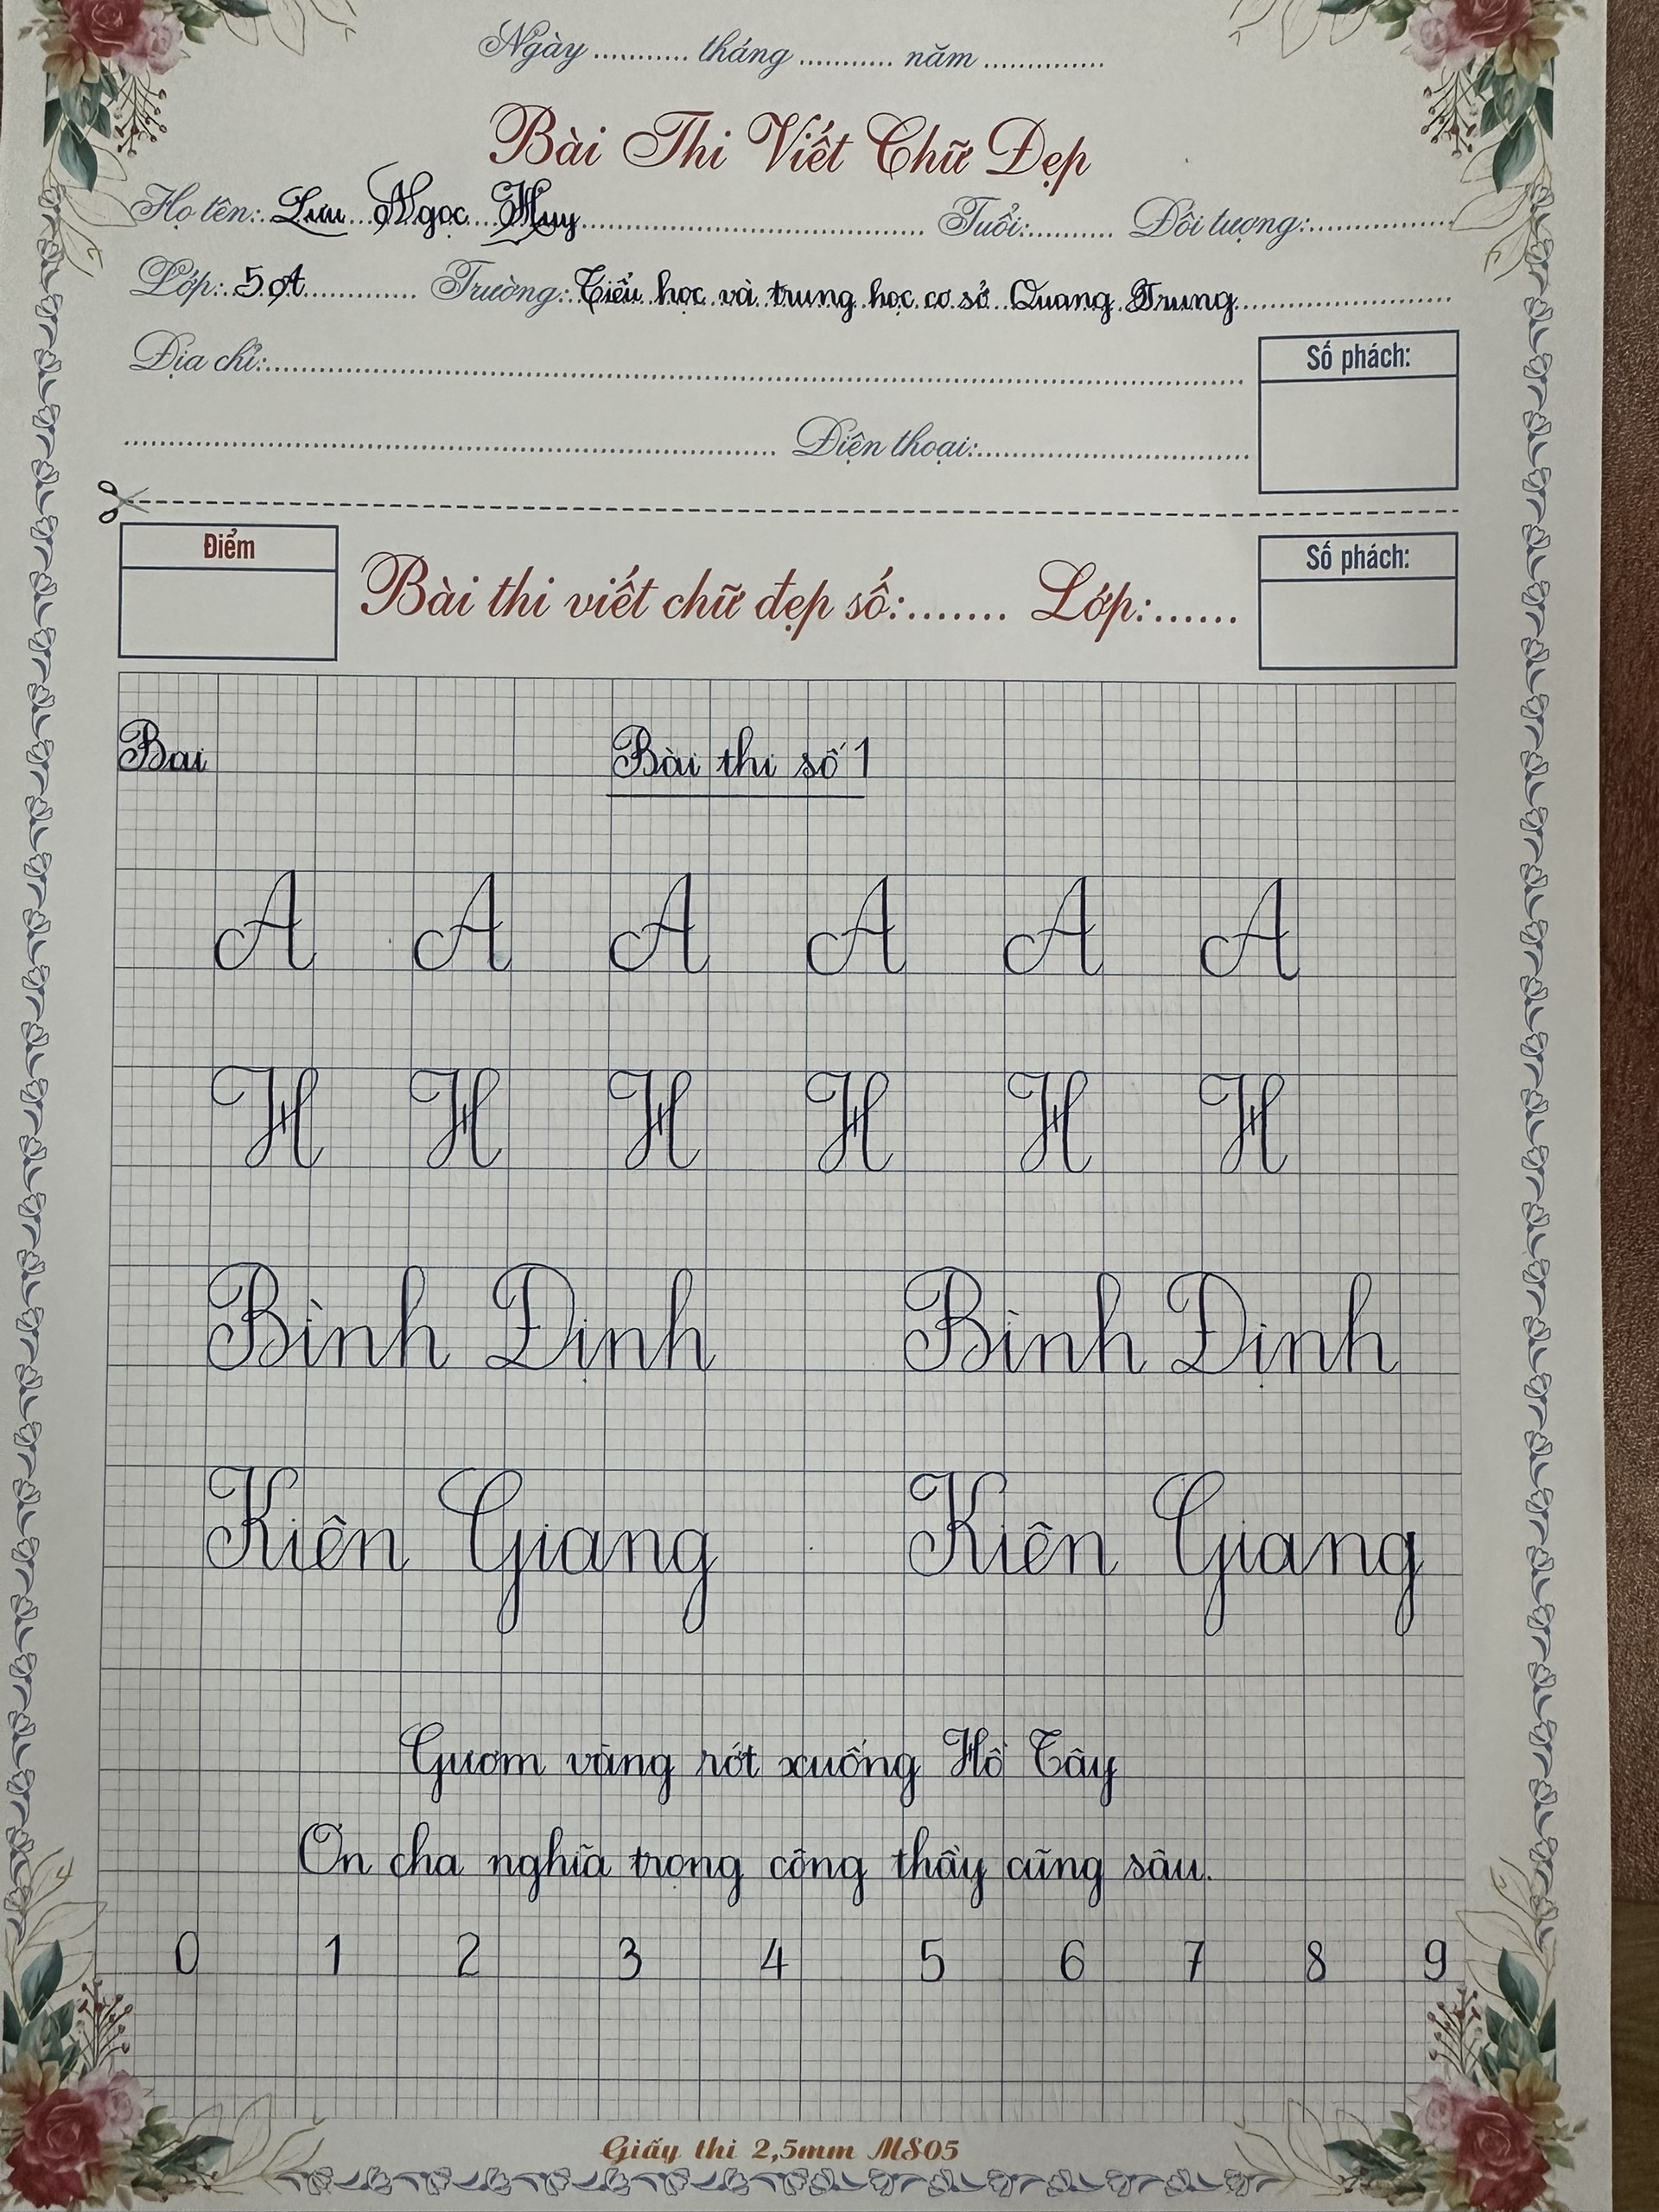 Ngày .......... tháng .......... năm .............
Bài Thi Viết Chữ Đẹp
Họ tên: Lưu Ngọc Huy Tuổi: Đối tượng:
Lớp: 5A Trường: Tiểu học và trung học cơ sở Quang Trung
Địa chỉ:
Số phách:
Điện thoại:
Điểm
Bài thi viết chữ đẹp số:....... Lớp:......
Số phách:
Bai Bài thi số 1
A A A A A A
H H H H H H
Bình Định Bình Định
Kiên Giang Kiên Giang
Gươm vàng rớt xuống Hồ Tây
Ơn cha nghĩa trọng công thầy cũng sâu.
0 1 2 3 4 5 6 7 8 9
Giấy thi 2,5mm MS05